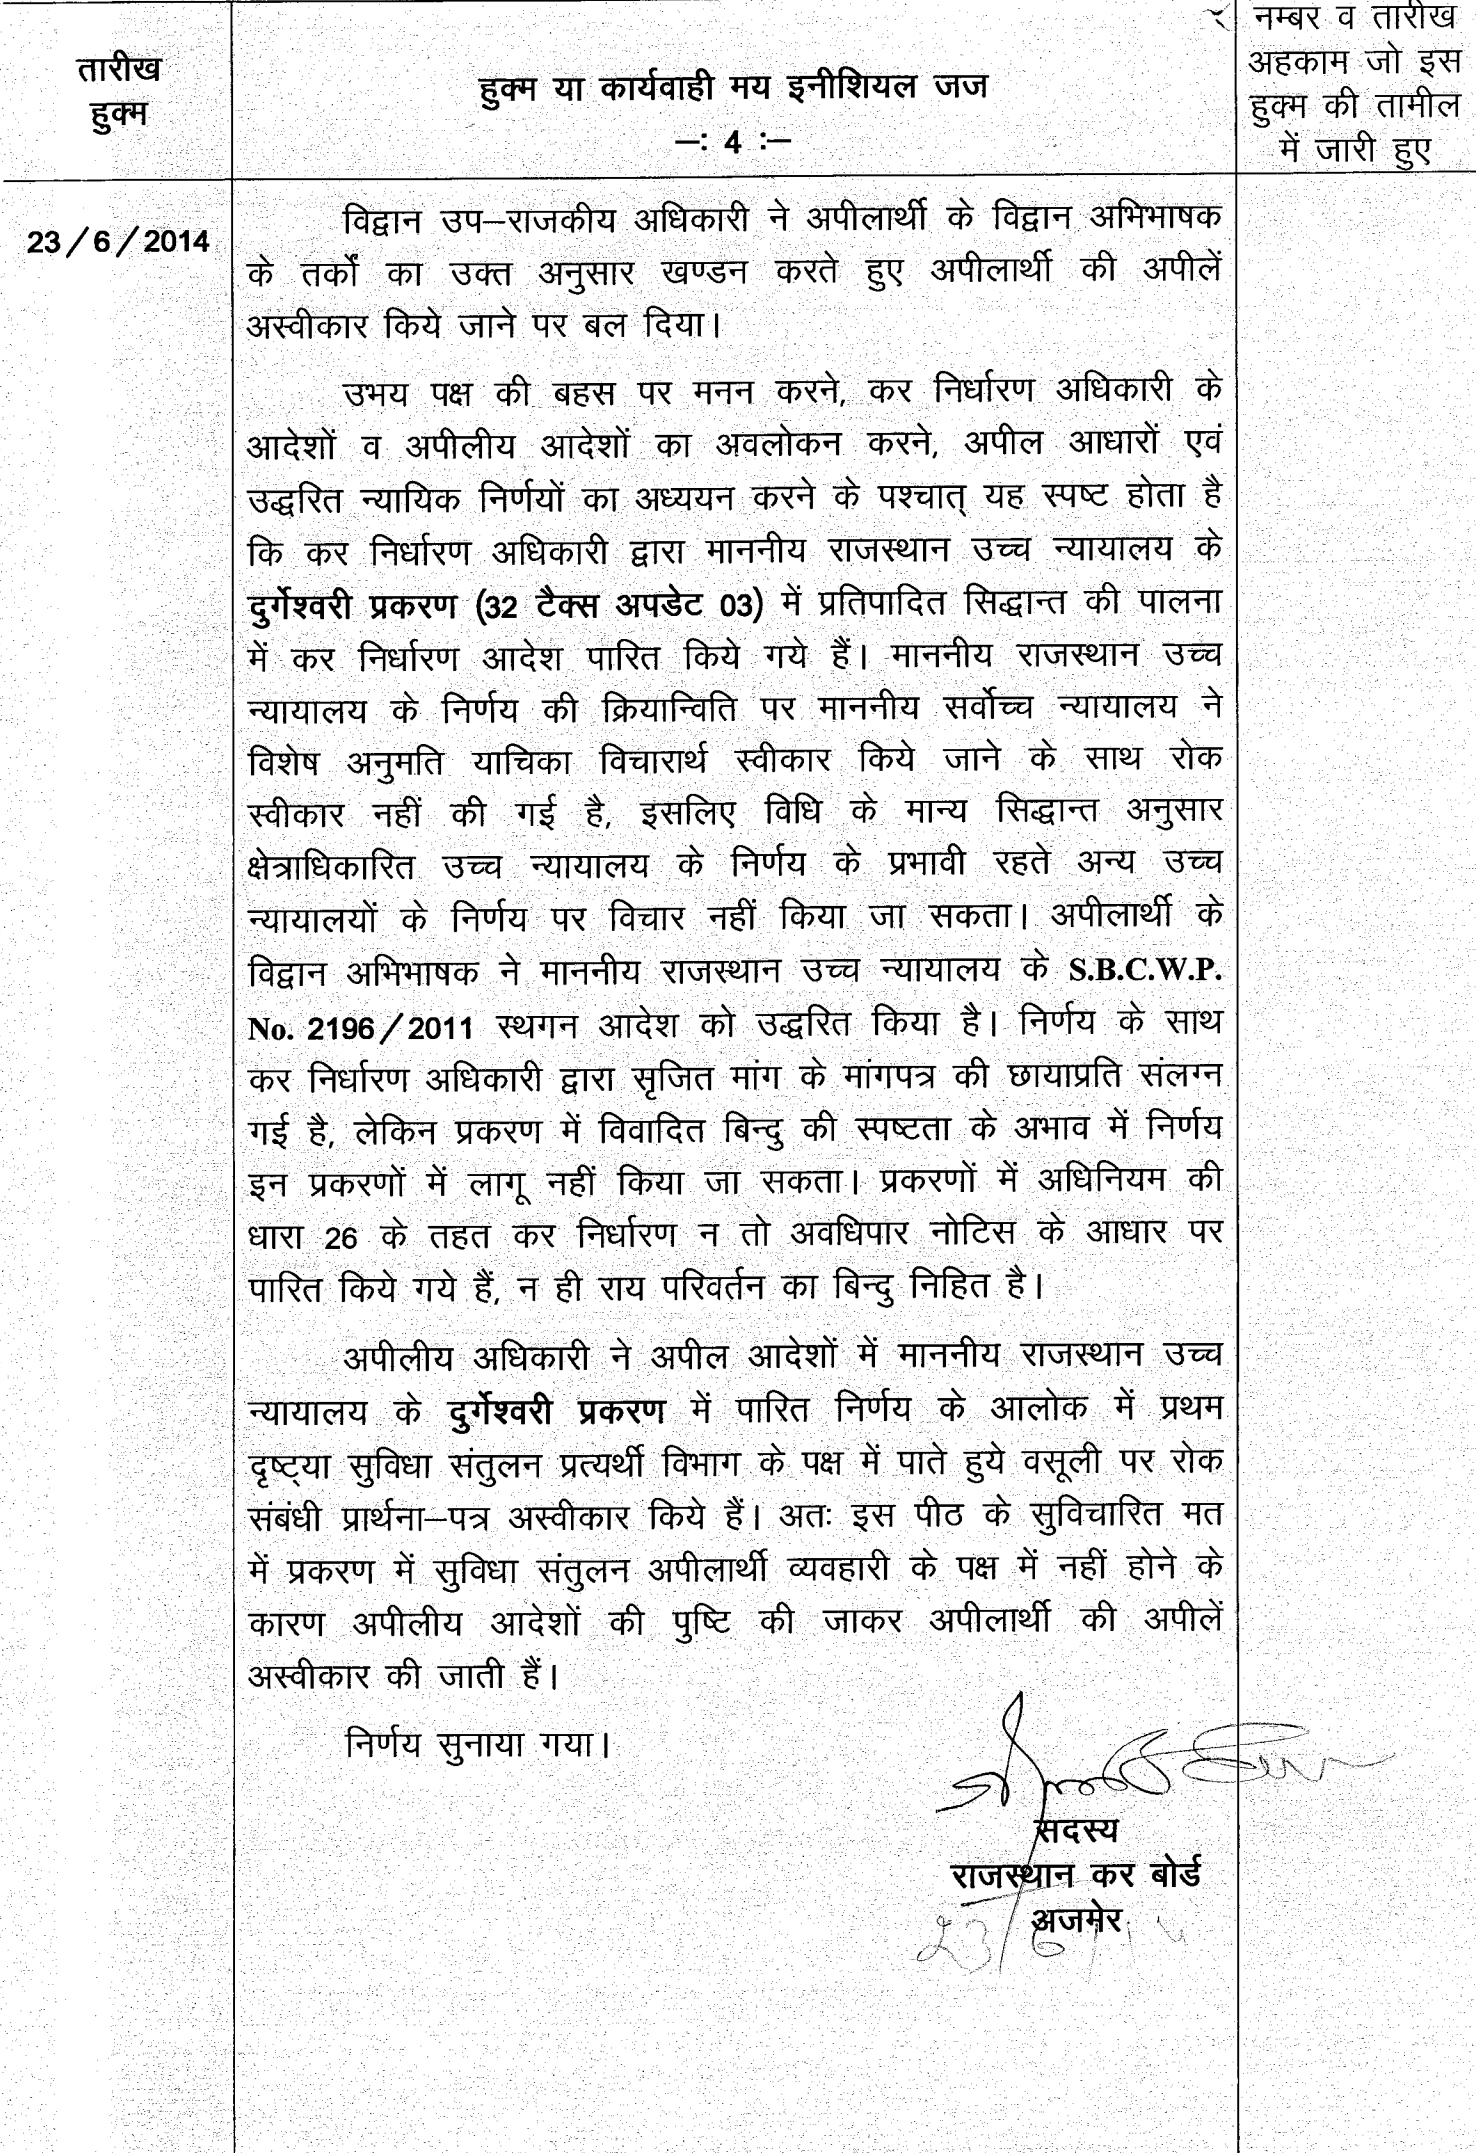 तारीख
हुक्म
हुक्म या कार्यवाही मय इनीशियल जज
—: 4 :—
नम्बर व तारीख
अहकाम जो इस
हुक्म की तामील
में जारी हुए
23/6/2014
विद्वान उप–राजकीय अधिकारी ने अपीलार्थी के विद्वान अभिभाषक
के तर्कों का उक्त अनुसार खण्डन करते हुए अपीलार्थी की अपीलें
अस्वीकार किये जाने पर बल दिया।
उभय पक्ष की बहस पर मनन करने, कर निर्धारण अधिकारी के
आदेशों व अपीलीय आदेशों का अवलोकन करने, अपील आधारों एवं
उद्धरित न्यायिक निर्णयों का अध्ययन करने के पश्चात् यह स्पष्ट होता है
कि कर निर्धारण अधिकारी द्वारा माननीय राजस्थान उच्च न्यायालय के
दुर्गेश्वरी प्रकरण (32 टैक्स अपडेट 03) में प्रतिपादित सिद्धान्त की पालना
में कर निर्धारण आदेश पारित किये गये हैं। माननीय राजस्थान उच्च
न्यायालय के निर्णय की क्रियान्विति पर माननीय सर्वोच्च न्यायालय ने
विशेष अनुमति याचिका विचारार्थ स्वीकार किये जाने के साथ रोक
स्वीकार नहीं की गई है, इसलिए विधि के मान्य सिद्धान्त अनुसार
क्षेत्राधिकारित उच्च न्यायालय के निर्णय के प्रभावी रहते अन्य उच्च
न्यायालयों के निर्णय पर विचार नहीं किया जा सकता। अपीलार्थी के
विद्वान अभिभाषक ने माननीय राजस्थान उच्च न्यायालय के S.B.C.W.P.
No. 2196/2011 स्थगन आदेश को उद्धरित किया है। निर्णय के साथ
कर निर्धारण अधिकारी द्वारा सृजित मांग के मांगपत्र की छायाप्रति संलग्न
गई है, लेकिन प्रकरण में विवादित बिन्दु की स्पष्टता के अभाव में निर्णय
इन प्रकरणों में लागू नहीं किया जा सकता। प्रकरणों में अधिनियम की
धारा 26 के तहत कर निर्धारण न तो अवधिपार नोटिस के आधार पर
पारित किये गये हैं, न ही राय परिवर्तन का बिन्दु निहित है।
अपीलीय अधिकारी ने अपील आदेशों में माननीय राजस्थान उच्च
न्यायालय के दुर्गेश्वरी प्रकरण में पारित निर्णय के आलोक में प्रथम
दृष्ट्या सुविधा संतुलन प्रत्यर्थी विभाग के पक्ष में पाते हुये वसूली पर रोक
संबंधी प्रार्थना–पत्र अस्वीकार किये हैं। अतः इस पीठ के सुविचारित मत
में प्रकरण में सुविधा संतुलन अपीलार्थी व्यवहारी के पक्ष में नहीं होने के
कारण अपीलीय आदेशों की पुष्टि की जाकर अपीलार्थी की अपीलें
अस्वीकार की जाती हैं।
निर्णय सुनाया गया।
सदस्य
राजस्थान कर बोर्ड
अजमेर
23/6/14